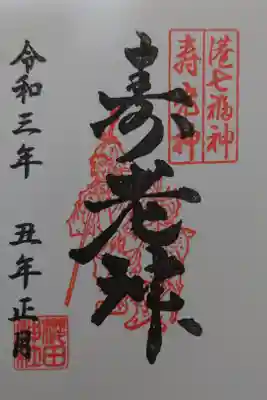 港七福神
寿老神
寿老神
令和三年 丑年正月
櫻田神社